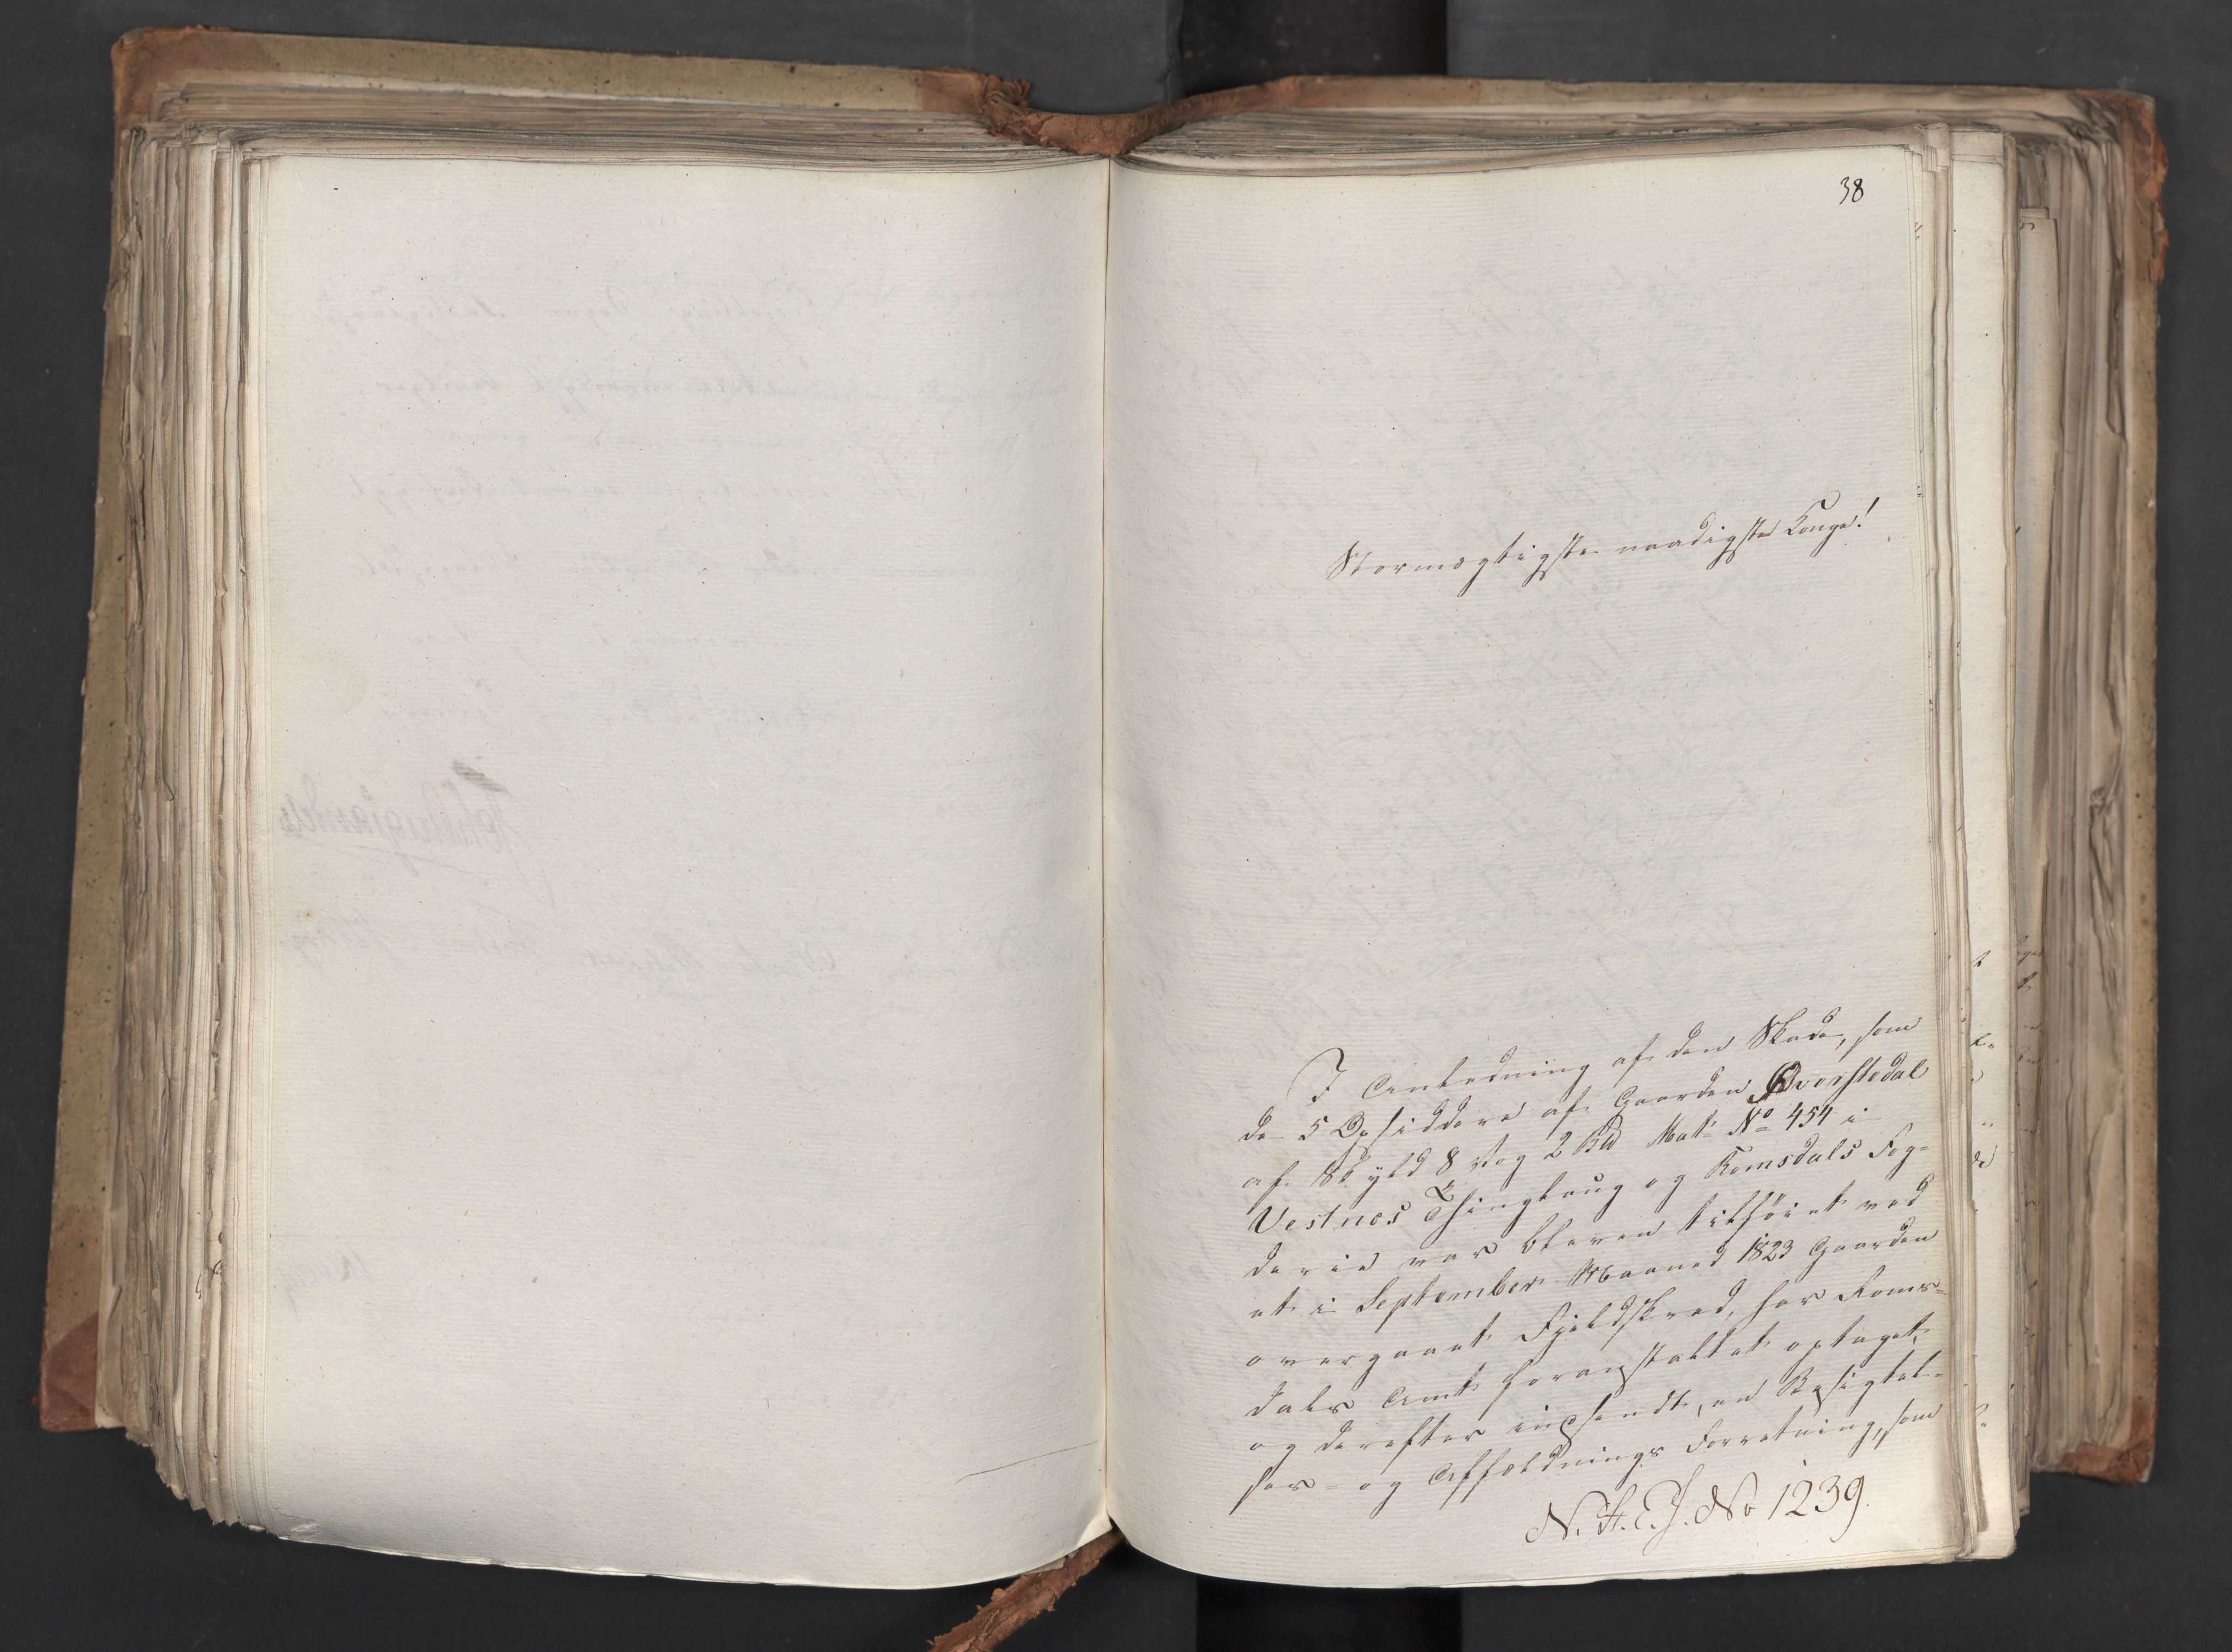 38
Stormægtigste naadigste Konge!
I Anledning af den Skade, som
de 5 Opsiddere af Gaarden Øverstedal
af Skyld 8 Vog 2 Mat: No 454 i
Vestnæs Thinglaug og Romsdals Fog-
derie var bleven tilføiet ved
et i September Maaned 1823 Gaarden
overgaaet Fjeldskred, har Roms-
dals Amt foranstaltet optaget,
og derefter indsendt, en Besigtel-
ses- og Affældnings Forretning, som
N. H. E. J. No 1239.